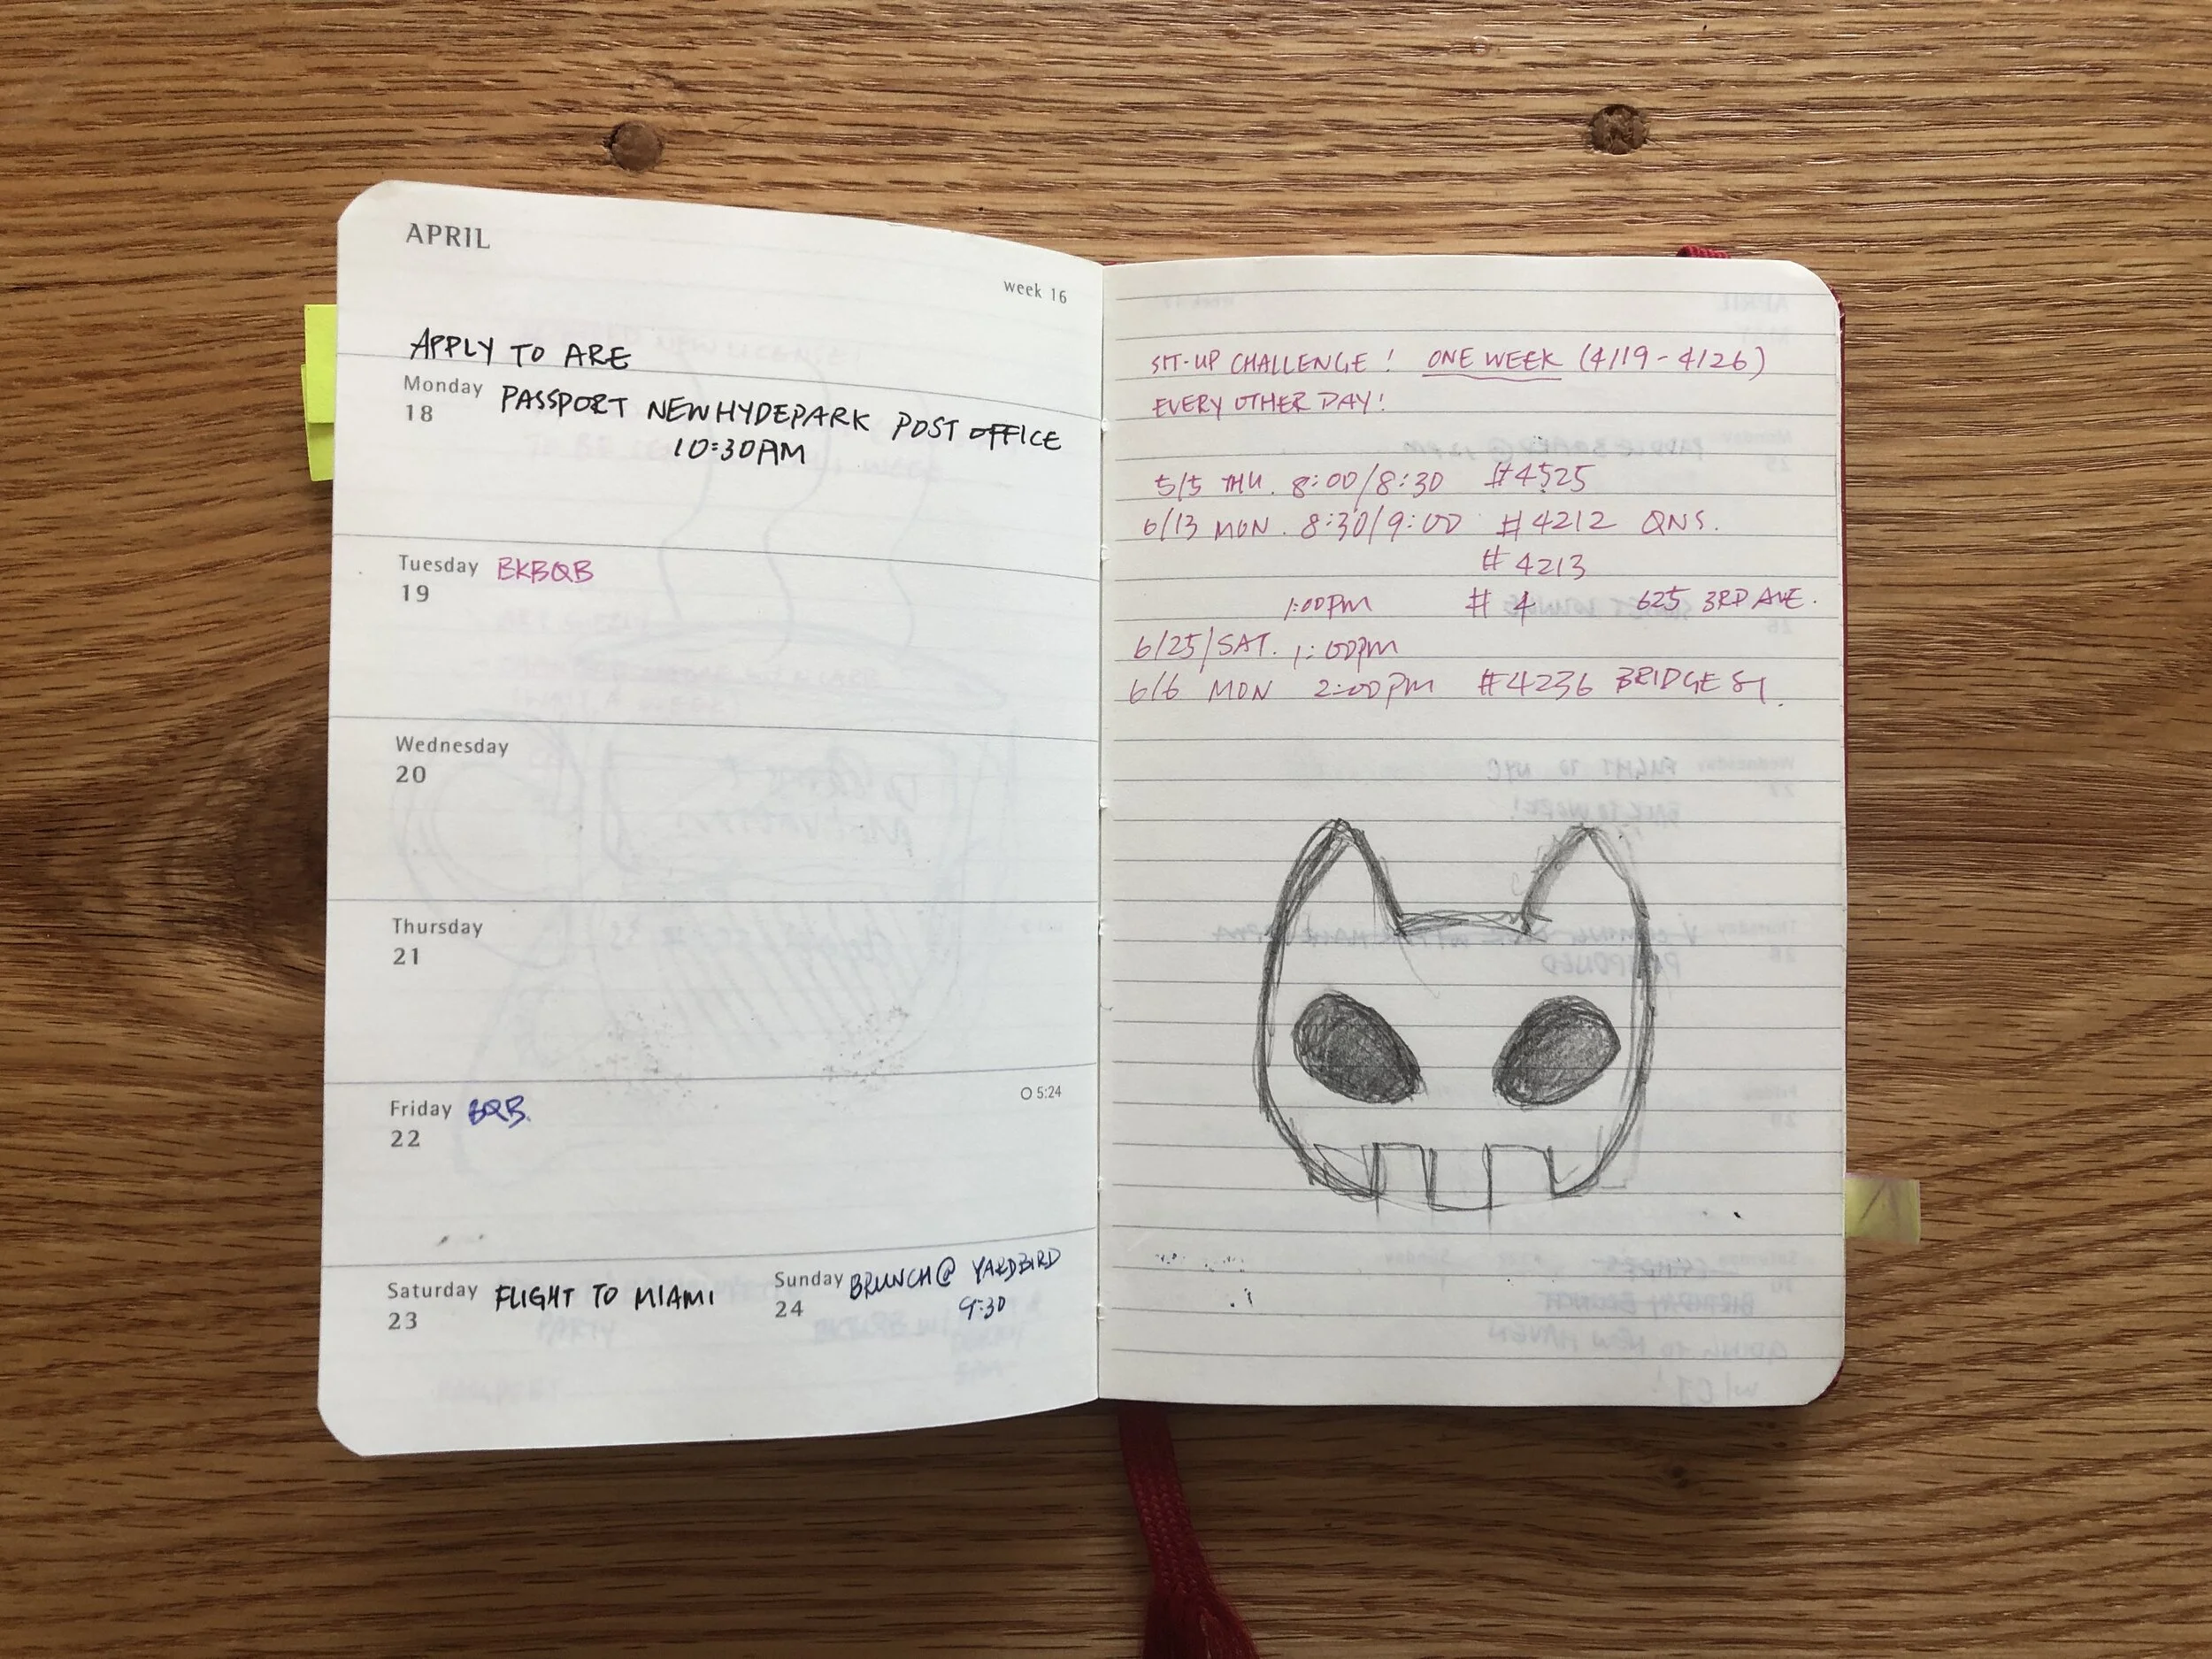 APRIL
week 16
APPLY TO ARE
Monday PASSPORT NEW HYDEPARK POST OFFICE
18 10:30PM
Tuesday BKBQB
19
Wednesday
20
Thursday
21
Friday BQB.
22
O 5:24
Saturday FLIGHT TO MIAMI
23
Sunday BRUNCH@ YARDBIRD
24 9:30
SIT-UP CHALLENGE! ONE WEEK (4/19-4/26)
EVERY OTHER DAY!
5/5 THU. 8:00/8:30 #4525
6/13 MON. 8:30/9:00 #4212 QNS.
#4213
1:00PM #4 625 3RD AVE.
6/25/SAT. 1:00PM
6/6 MON 2:00PM #4236 BRIDGE ST.